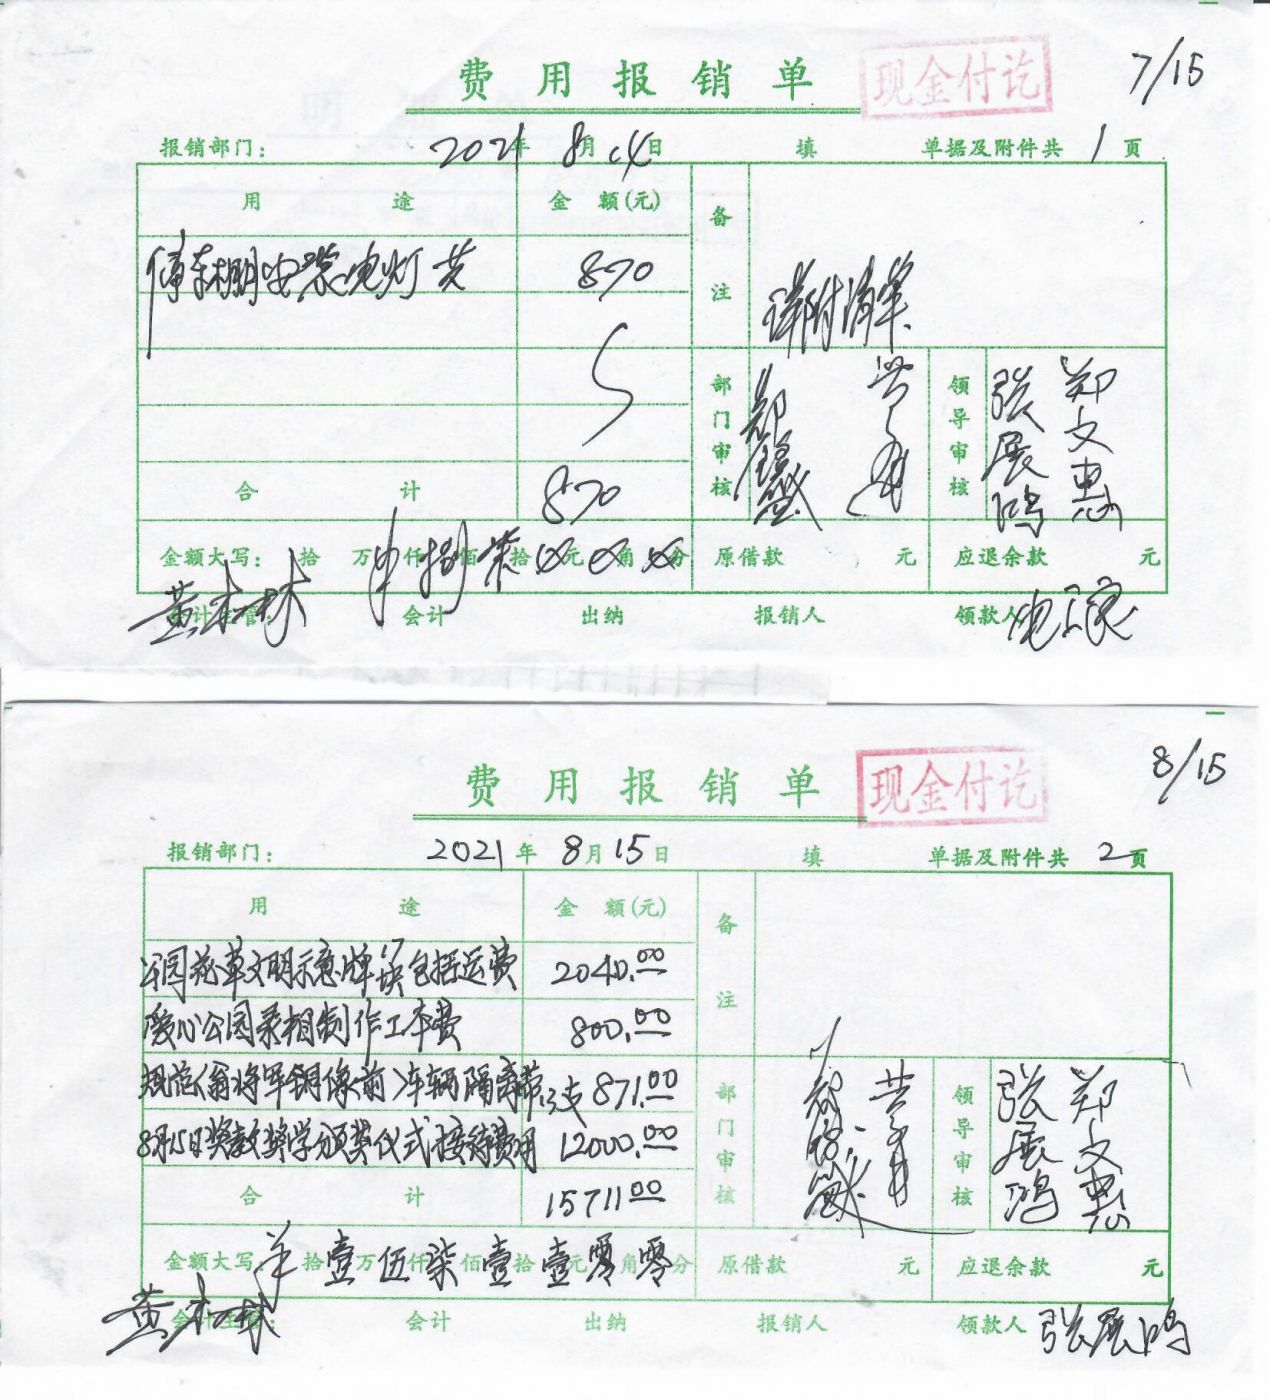 费用报销单 现金付讫 7/15
报销部门： 2021年 8月14日 填 单据及附件共 1 页
用途 金额(元) 备注
停车棚安装电灯共 870
详附清单
部门审核 领导审核 张展鸿 郑文惠
合计 870
金额大写： 拾 万 仟捌佰柒拾 元 角 分 原借款 元 应退余款 元
黄木林 会计主管： 会计 出纳 报销人 领款人
费用报销单 现金付讫 8/15
报销部门： 2021年 8月15日 填 单据及附件共 2 页
用途 金额(元) 备注
公园花草文明示意牌17块包括运费 2040.00
爱心公园录相制作工本费 800.00
规范(翁将军铜像前)车辆隔离带13支 871.00
8月15日奖教奖学颁奖仪式接待费用 12000.00
部门审核 领导审核 张展鸿 郑文惠
合计 15711.00
金额大写： 拾壹万伍仟柒佰壹拾壹元零角零分 原借款 元 应退余款 元
黄木林 会计主管： 会计 出纳 报销人 领款人 张展鸿